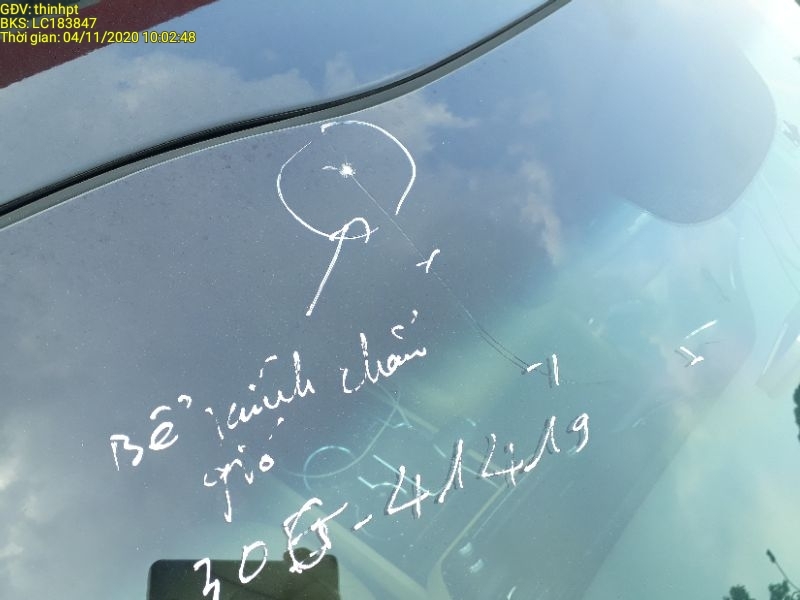 GĐV: thinhpt
BKS: LC183847
Thời gian: 04/11/2020 10:02:48
Bể kính chắn
gió
30E-41419